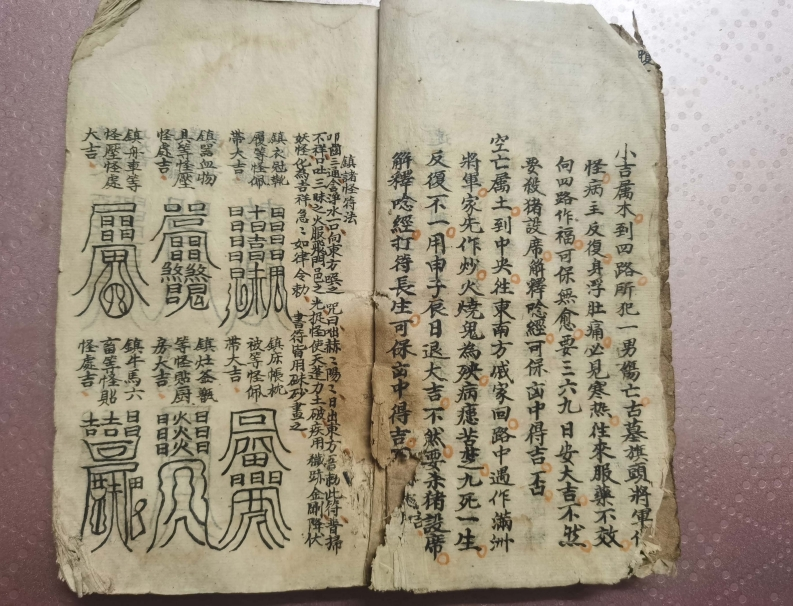 小吉属木到四路所犯一男傷亡古墓旗頭將軍作
怪病主反復身浮肚痛必見寒热往來服藥不效
向四路作福可保無愈要三六九日安大吉不然
要殺猪設席解釋唸經可保凶中得吉否
空亡属土到中央往東南方戚家回路中遇作滿洲
將軍家先作炒火燒鬼為殃病癒苦楚九死一生
反復不一用申子辰日退大吉不然要杀猪設席
解釋唸經打待長生可保凶中得吉
鎮諸怪符法
叩齒三通含淨水一口向東方噀之咒曰赫赫陽陽日出東方吾勅此符普掃
不祥口吐三昧之火服飛門邑之光捉怪使天蓬力士破疾用穢跡金剛降伏
妖怪化為吉祥急急如律令勅 書符皆用硃砂畫之
鎮衣冠靴
履等怪佩
帶大吉
鎮器血物
具等怪壓
怪處吉
鎮舟車等
怪壓怪處
大吉
鎮床帳枕
被等怪佩
帶大吉
鎮灶釜甑
等怪貼廚
房大吉
鎮牛馬六
畜等怪貼
怪處吉